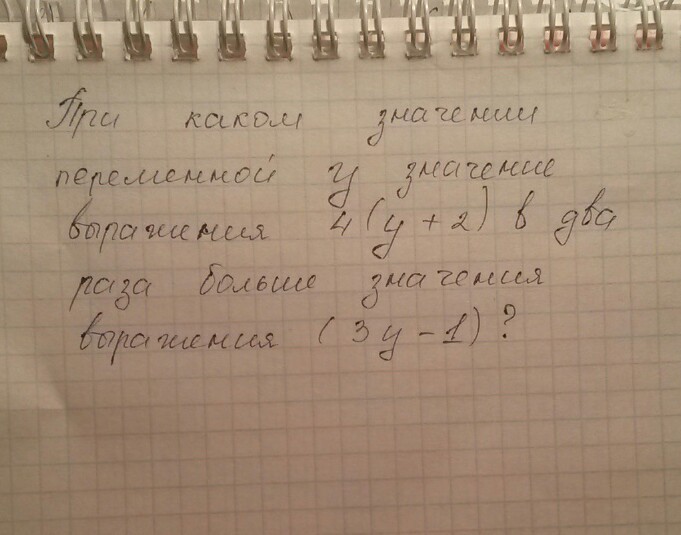 При каком значении
переменной y значение
выражения 4(y+2) в два
раза больше значения
выражения (3y-1)?